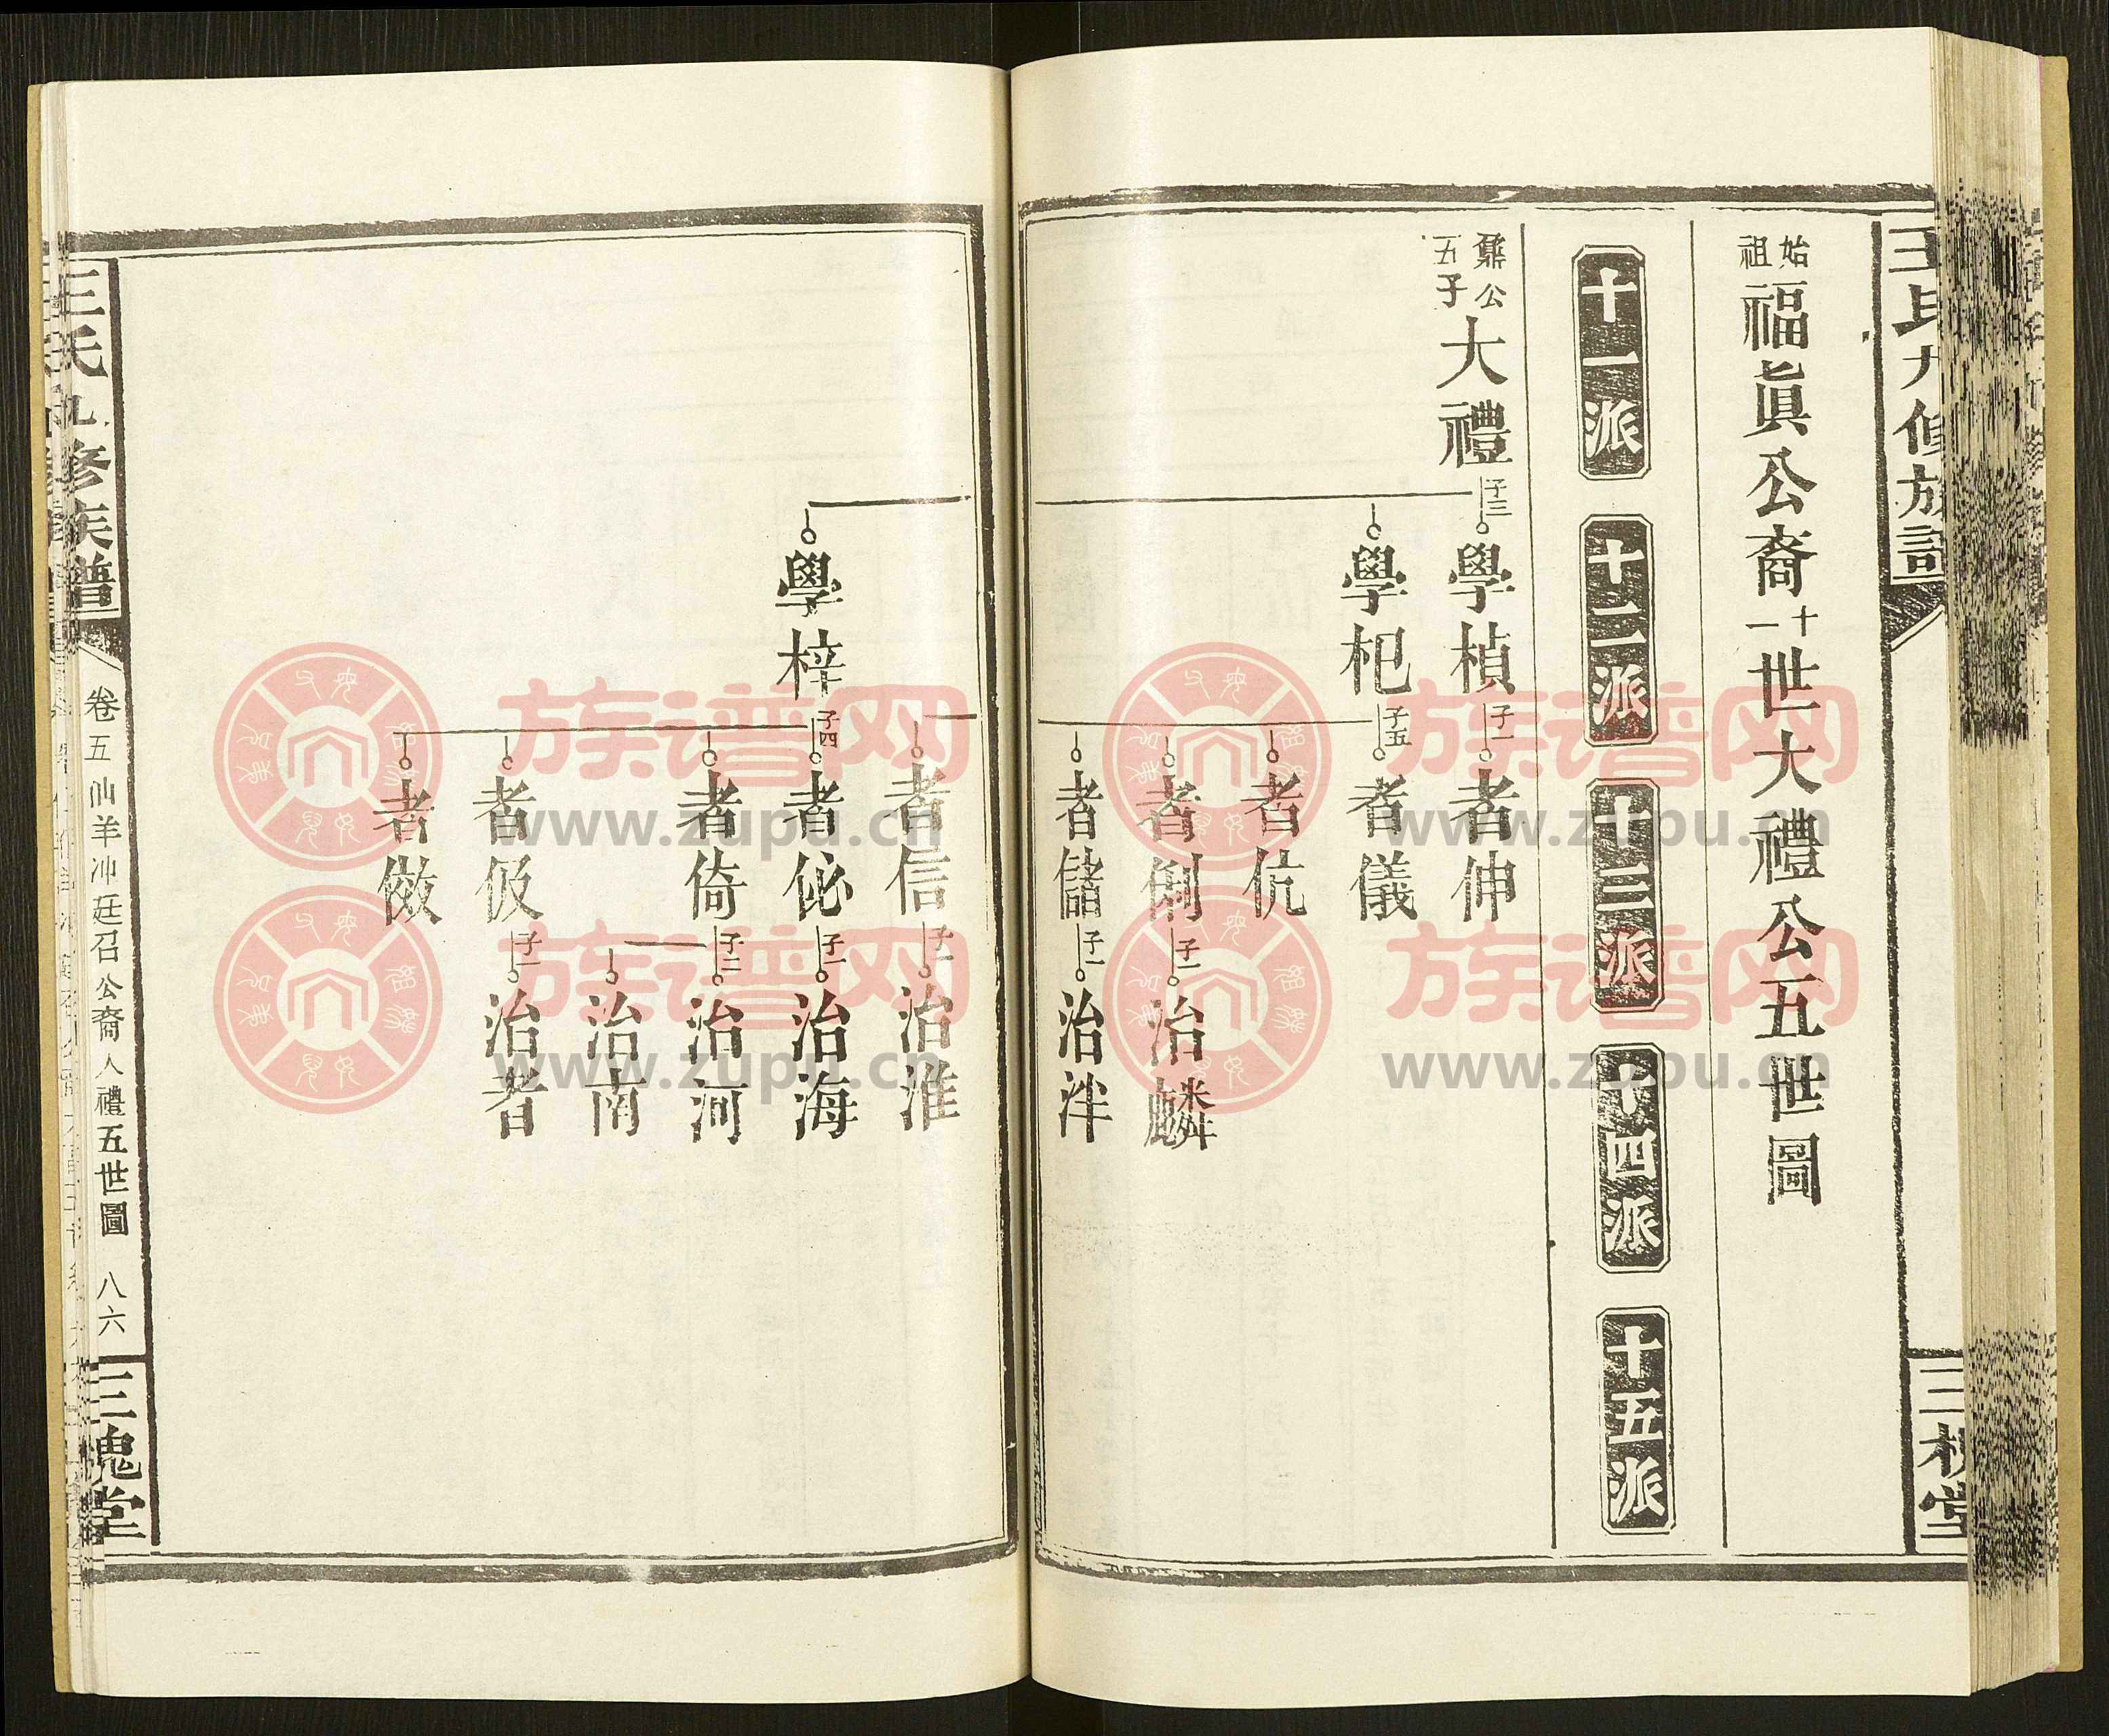 王氏九修族譜
三槐堂
始祖福眞公裔十一世大禮公五世圖
十一派
十二派
十三派
十四派
十五派
鼐公五子大禮
子三
學楨
子一
者伸
學杞
子五
者儀
者伉
者俐
子一
治麟
者儲
子一
治泮
者信
子一
治淮
學梓
子四
者佖
子一
治海
者倚
子二
治河
治南
者伋
子一
治者
者儆
王氏九修族譜
卷五
仙羊冲廷召公裔人禮五世圖
八六
三槐堂
族谱网
www.zupu.cn
族谱网
www.zupu.cn
族谱网
www.zupu.cn
族谱网
www.zupu.cn